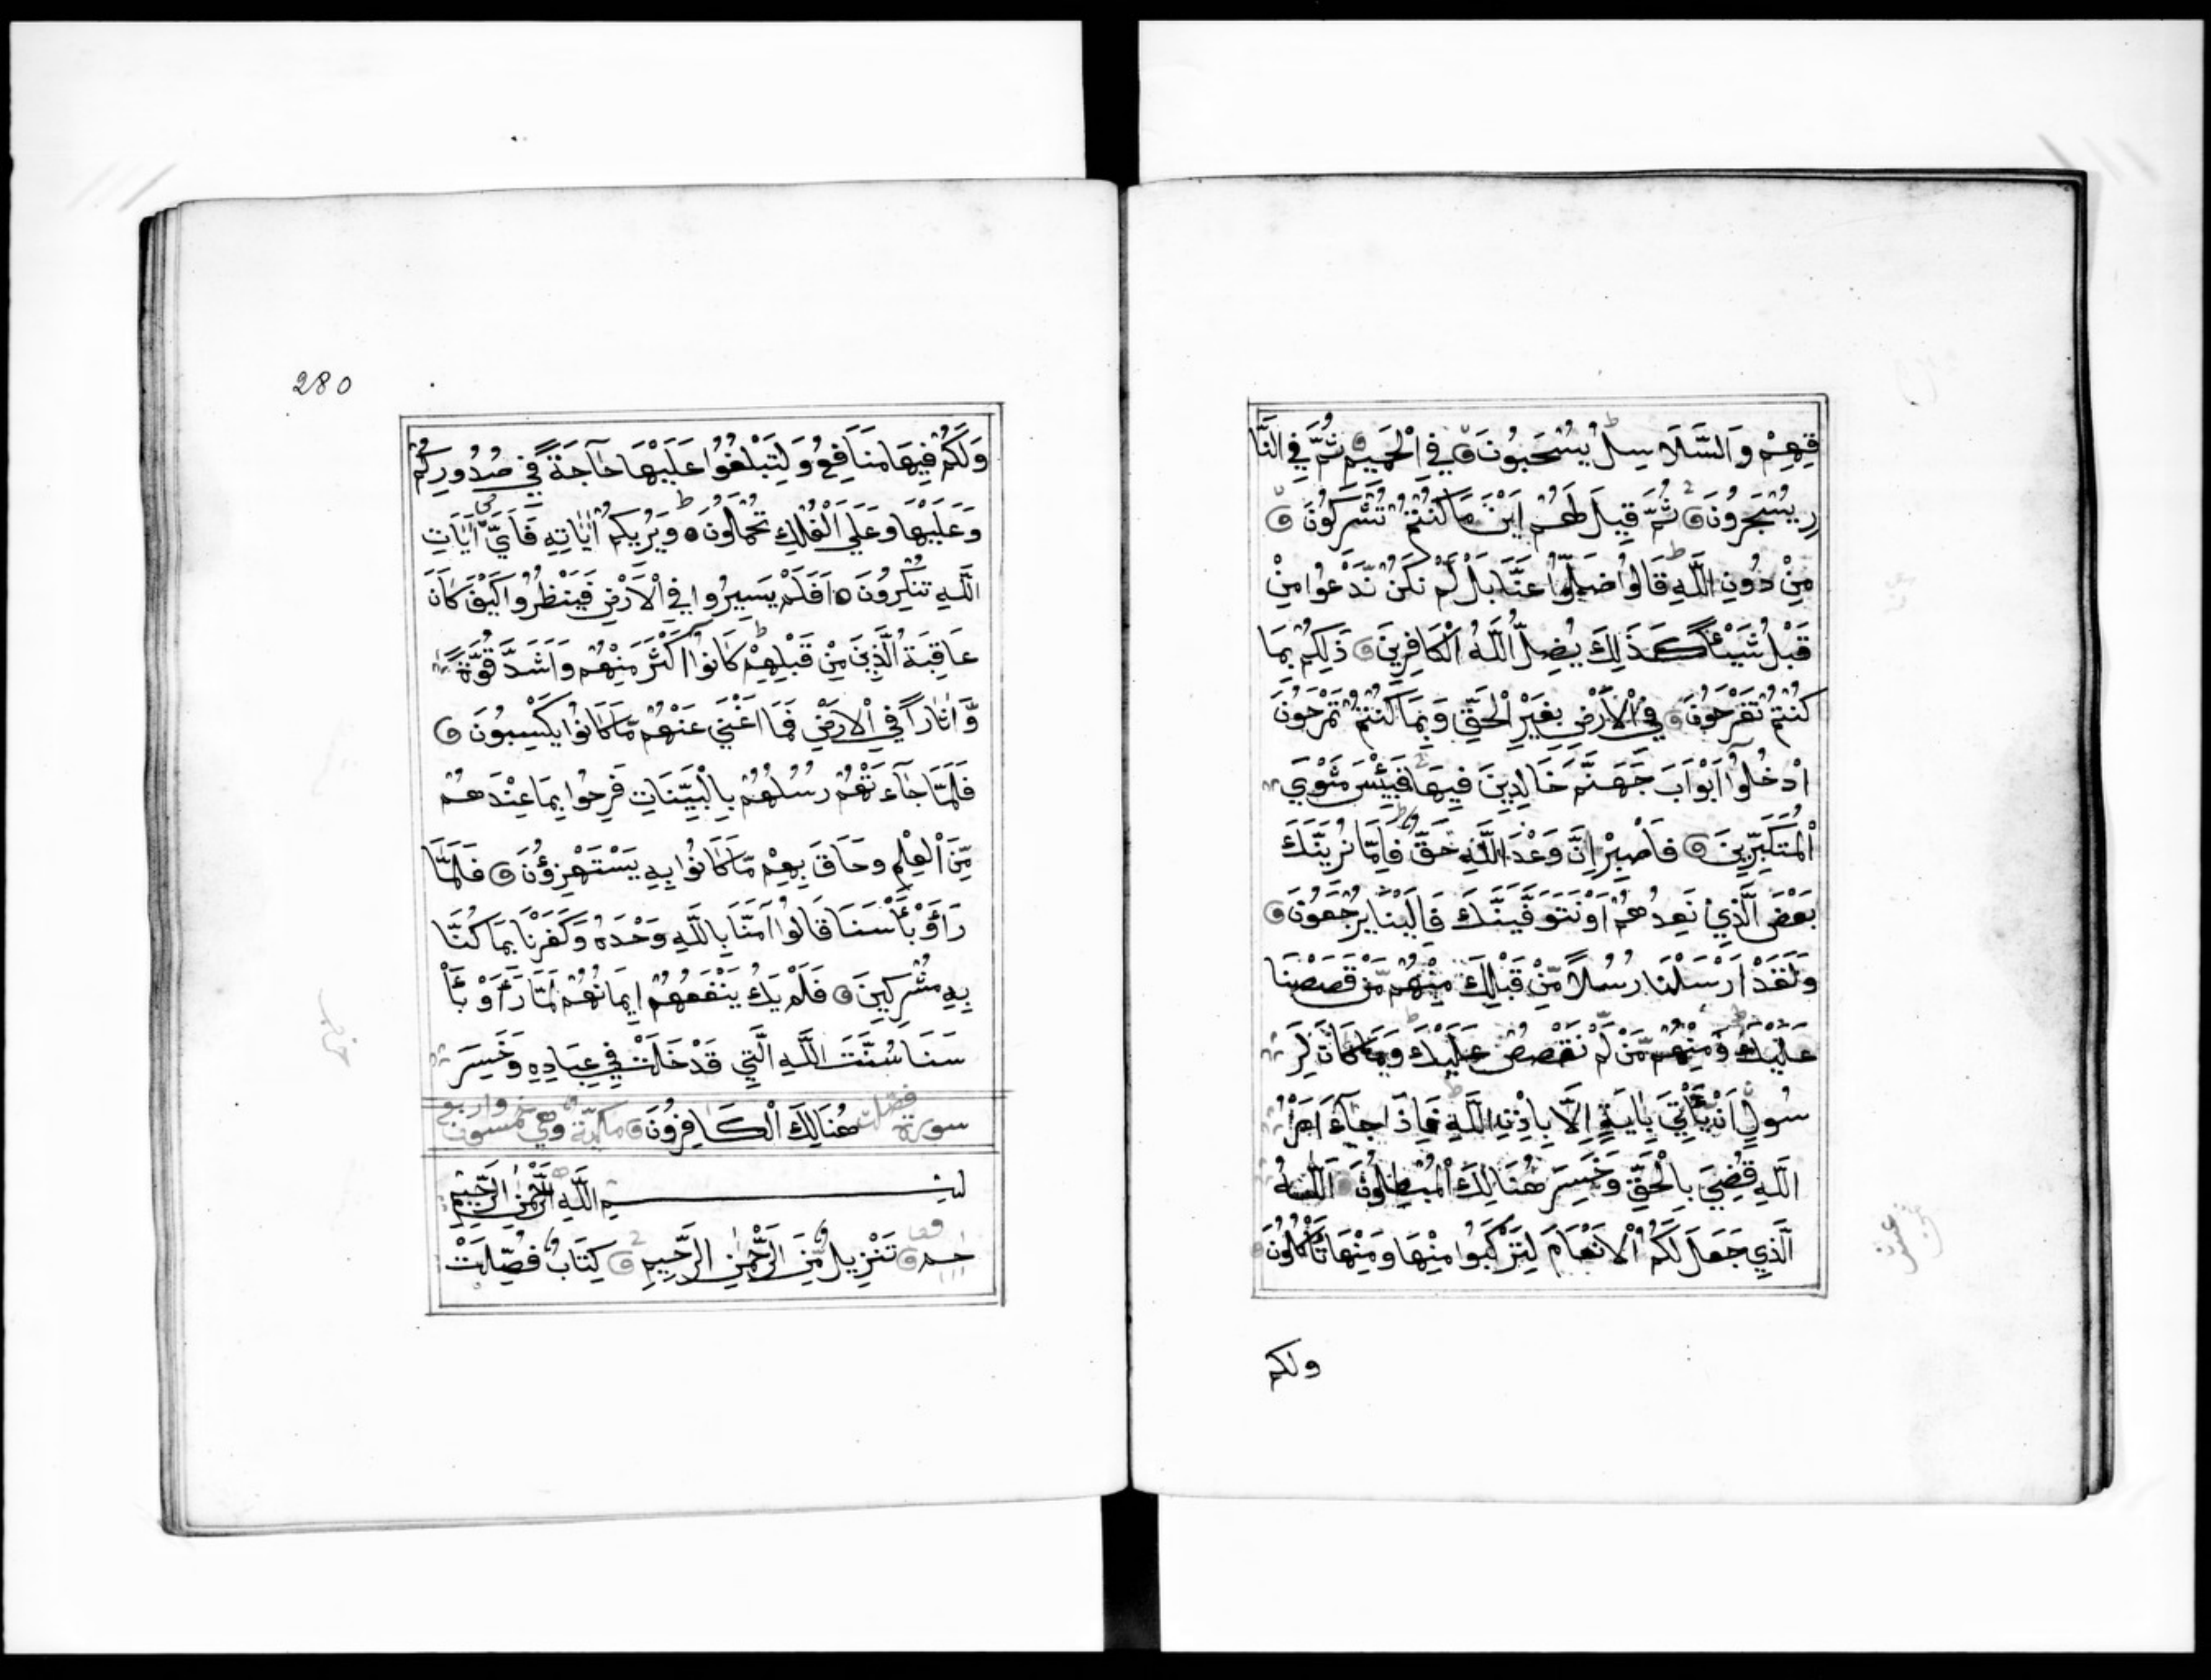 قِهِمْ وَالسَّلَاسِلُ يُسْحَبُونَ فِي الْحَمِيمِ ثُمَّ فِي النَّا
رِ يُسْجَرُونَ ثُمَّ قِيلَ لَهُمْ اَيْنَ مَا كُنْتُمْ تُشْرِكُونَ
مِنْ دُونِ اللَّهِ قَالُوا ضَلُّوا عَنَّا بَلْ لَمْ نَكُنْ نَدْعُوا مِنْ
قَبْلُ شَيْئًا كَذَلِكَ يُضِلُّ اللَّهُ الْكَافِرِينَ ذَلِكُمْ بِمَا
كُنْتُمْ تَفْرَحُونَ فِي الْاَرْضِ بِغَيْرِ الْحَقِّ وَبِمَا كُنْتُمْ تَمْرَحُونَ
اُدْخُلُوا اَبْوَابَ جَهَنَّمَ خَالِدِينَ فِيهَا فَبِئْسَ مَثْوَي
الْمُتَكَبِّرِينَ فَاصْبِرْ اِنَّ وَعْدَ اللَّهِ حَقٌّ فَاِمَّا نُرِيَنَّكَ
بَعْضَ الَّذِي نَعِدُهُمْ اَوْ نَتَوَفَّيَنَّكَ فَاِلَيْنَا يُرْجَعُونَ
وَلَقَدْ اَرْسَلْنَا رُسُلًا مِّنْ قَبْلِكَ مِنْهُمْ مَّنْ قَصَصْنَا
عَلَيْكَ وَمِنْهُمْ مَّنْ لَّمْ نَقْصُصْ عَلَيْكَ وَمَا كَانَ لِرَ
سُولٍ اَنْ يَّأْتِيَ بِاٰيَةٍ اِلَّا بِاِذْنِ اللَّهِ فَاِذَا جَآءَ اَمْرُ
اللَّهِ قُضِيَ بِالْحَقِّ وَخَسِرَ هُنَالِكَ الْمُبْطِلُونَ اَللَّهُ
الَّذِي جَعَلَ لَكُمُ الْاَنْعَامَ لِتَرْكَبُوا مِنْهَا وَمِنْهَا تَأْكُلُونَ
ولكم
280
وَلَكُمْ فِيهَا مَنَافِعُ وَلِتَبْلُغُوا عَلَيْهَا حَاجَةً فِي صُدُورِكُمْ
وَعَلَيْهَا وَعَلَي الْفُلْكِ تُحْمَلُونَ وَيُرِيكُمْ اٰيَاتِهِ فَاَيَّ اٰيَاتِ
اللَّهِ تُنْكِرُونَ اَفَلَمْ يَسِيرُوا فِي الْاَرْضِ فَيَنْظُرُوا كَيْفَ كَانَ
عَاقِبَةُ الَّذِينَ مِنْ قَبْلِهِمْ كَانُوا اَكْثَرَ مِنْهُمْ وَاَشَدَّ قُوَّةً
وَّاٰثَارًا فِي الْاَرْضِ فَمَا اَغْنَي عَنْهُمْ مَّا كَانُوا يَكْسِبُونَ
فَلَمَّا جَآءَتْهُمْ رُسُلُهُمْ بِالْبَيِّنَاتِ فَرِحُوا بِمَا عِنْدَهُمْ
مِّنَ الْعِلْمِ وَحَاقَ بِهِمْ مَّا كَانُوا بِهِ يَسْتَهْزِؤُنَ فَلَمَّا
رَاَوْ بَأْسَنَا قَالُوا اٰمَنَّا بِاللَّهِ وَحْدَهُ وَكَفَرْنَا بِمَا كُنَّا
بِهِ مُشْرِكِينَ فَلَمْ يَكُ يَنْفَعُهُمْ اِيمَانُهُمْ لَمَّا رَاَوْ بَأْ
سَنَا سُنَّتَ اللَّهِ الَّتِي قَدْ خَلَتْ فِي عِبَادِهِ وَخَسِرَ
سورة فصلت هُنَالِكَ الْكَافِرُونَ مكية وهي خمسون واربع
بسم اللَّهِ الرَّحْمٰنِ الرَّحِيمِ
حم تَنْزِيلٌ مِّنَ الرَّحْمٰنِ الرَّحِيمِ كِتَابٌ فُصِّلَتْ